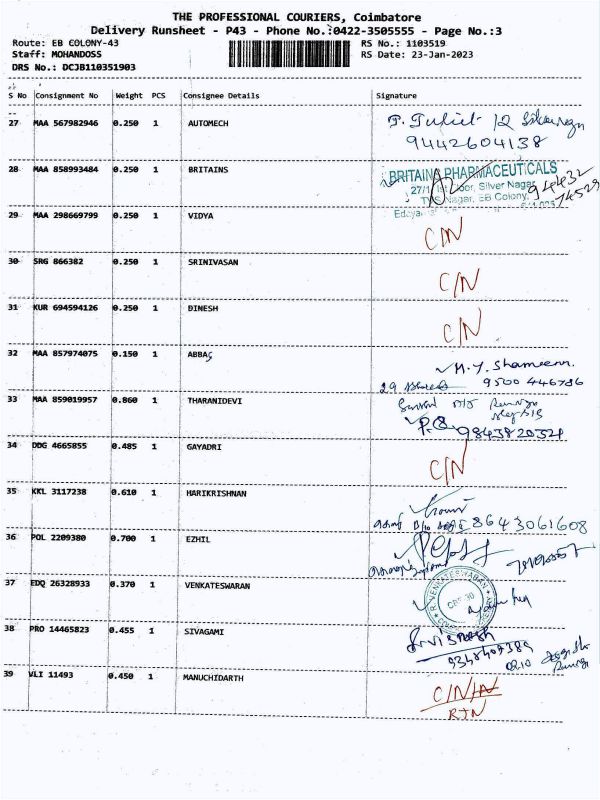 THE PROFESSIONAL COURIERS, Coimbatore
Delivery Runsheet - P43 - Phone No.:0422-3505555 - Page No.:3
Route: EB COLONY-43 RS No.: 1103519
Staff: MOHANDOSS RS Date: 23-Jan-2023
DRS No.: DCJB110351903
S No Consignment No Weight PCS Consignee Details Signature
27 MAA 567982946 0.250 1 AUTOMECH
9442604138
28 MAA 858993484 0.250 1 BRITAINS
BRITAINS PHARMACEUTICALS
Floor, Silver Nagar
Nagar, EB Colony,
94432
74529
29 MAA 298669799 0.250 1 VIDYA C/N
30 SRG 866382 0.250 1 SRINIVASAN C/N
31 KUR 694594126 0.250 1 DINESH C/N
32 MAA 857974075 0.150 1 ABBAS
9500 446786
33 MAA 859019957 0.860 1 THARANIDEVI
9843820321
34 DDG 4665855 0.485 1 GAYADRI C/N
35 KKL 3117238 0.610 1 HARIKRISHNAN
8643061608
36 POL 2209380 0.700 1 EZHIL
37 EDQ 26328933 0.370 1 VENKATESWARAN
R. VENKATESWARAN
38 PRO 14465823 0.455 1 SIVAGAMI
39 VLI 11493 0.450 1 MANUCHIDARTH
RTN